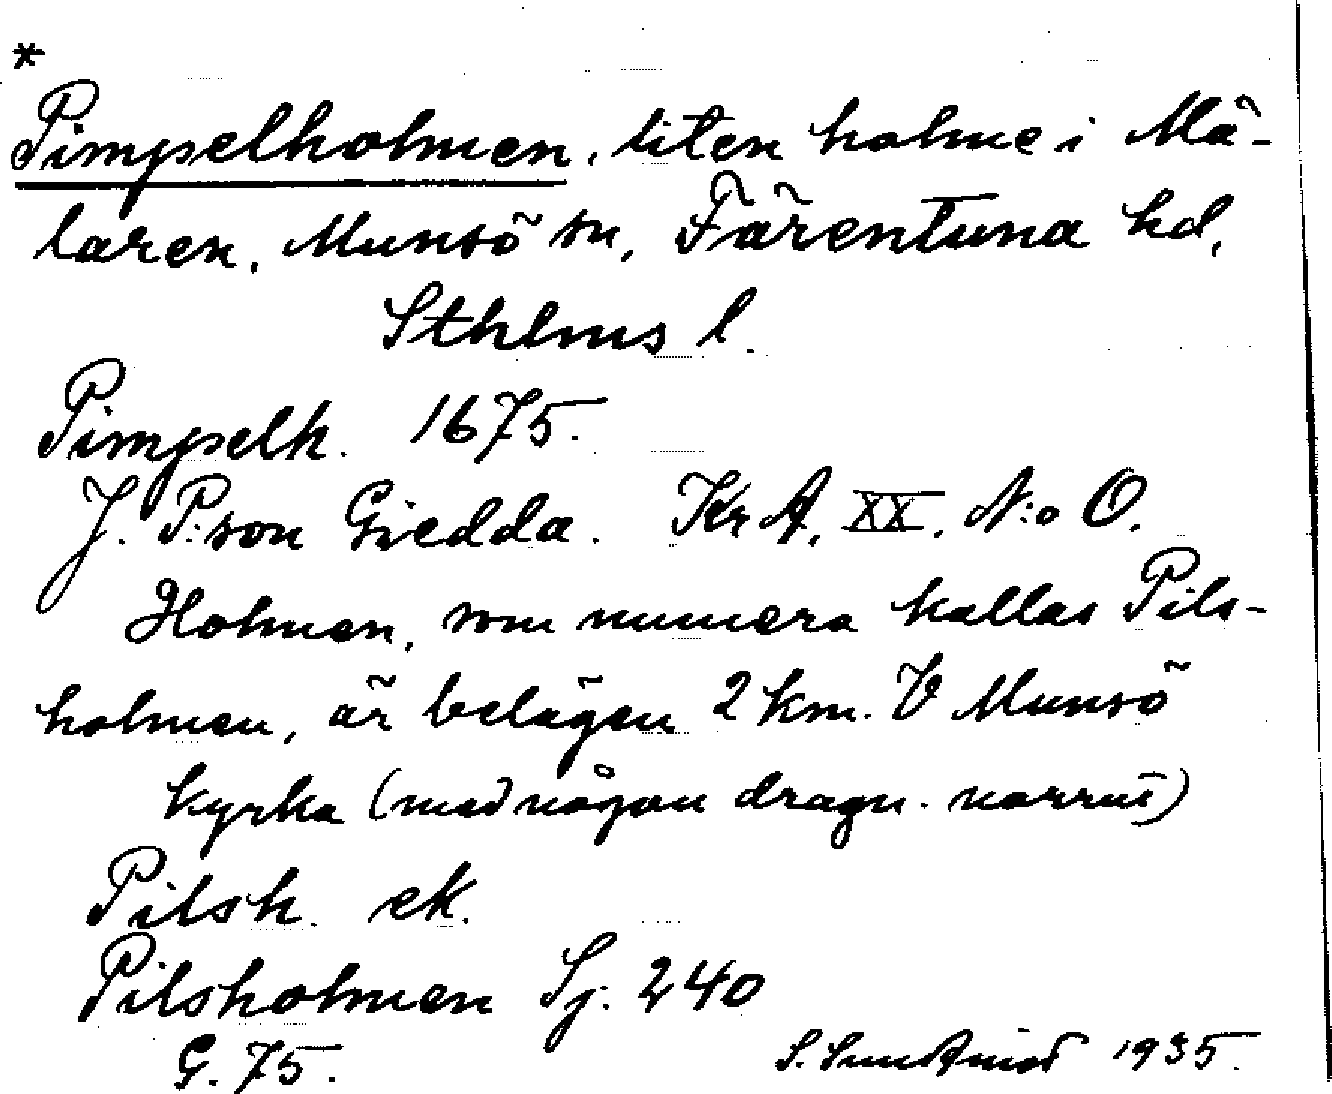 *
Pimpelholmen, liten holme i Mä-
laren, Munsö sn, Färentuna hd,
Sthlms l.
Pimpelh. 1675.
J. P:son Giedda. KrA, XX, N:o O.
Holmen, som numera kallas Pils-
holmen, är belägen 2 km. V Munsö
kyrka (med någon dragn. norrut)
Pilsh. ek.
Pilsholmen Sj. 240
G. 75. S. 1935.